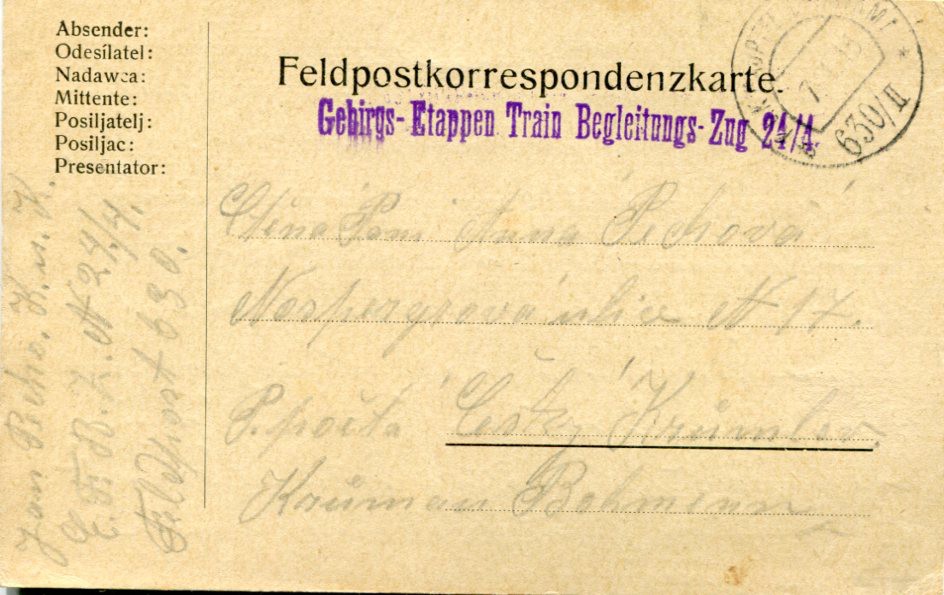 Absender:
Odesílatel:
Nadawca:
Mittente:
Posiljatelj:
Posiljac:
Presentator:
Feldpostkorrespondenzkarte.
Gebirgs-Etappen Train Begleitungs-Zug 24/4.
630/II
Ctěna Paní Anna Pichová
ulice N 17.
P. pošta Český Krumlov
Krumau Bohmenn
Jan
N 24/4.
Feldpost 630.